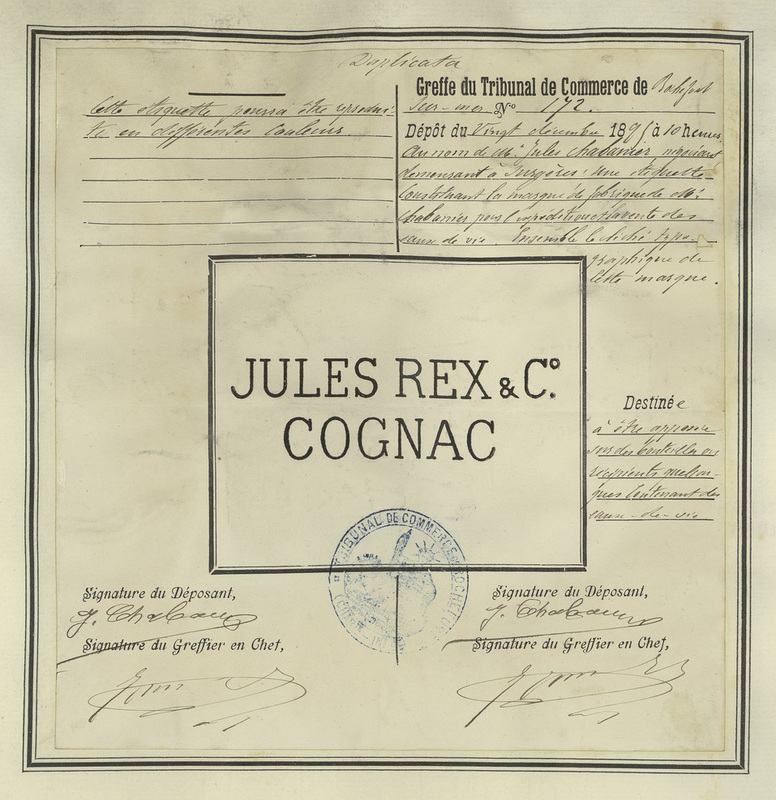 Duplicata
Cette étiquette pourra être reprodui-
te en différentes couleurs.
Greffe du Tribunal de Commerce de Rochefort
sur-mer No 172.
Dépôt du Vingt décembre 189 à 10 heures
Au nom de Mr. Jules Chabanier négociant
demeurant à Surgères: une étiquette
constituant la marque de fabrique de Mr
Chabanier pour l'expédition et la vente des
eaux de vie. Ensemble le cliché typo-
graphique de
cette marque.
JULES REX & Co.
COGNAC
Destinée
à être apposée
sur des bouteilles ou
récipients quelcon-
ques contenant des
eaux-de-vie
TRIBUNAL DE COMMERCE DE ROCHEFORT
Signature du Déposant,
J. Chabanier
Signature du Greffier en Chef,
Signature du Déposant,
J. Chabanier
Signature du Greffier en Chef,